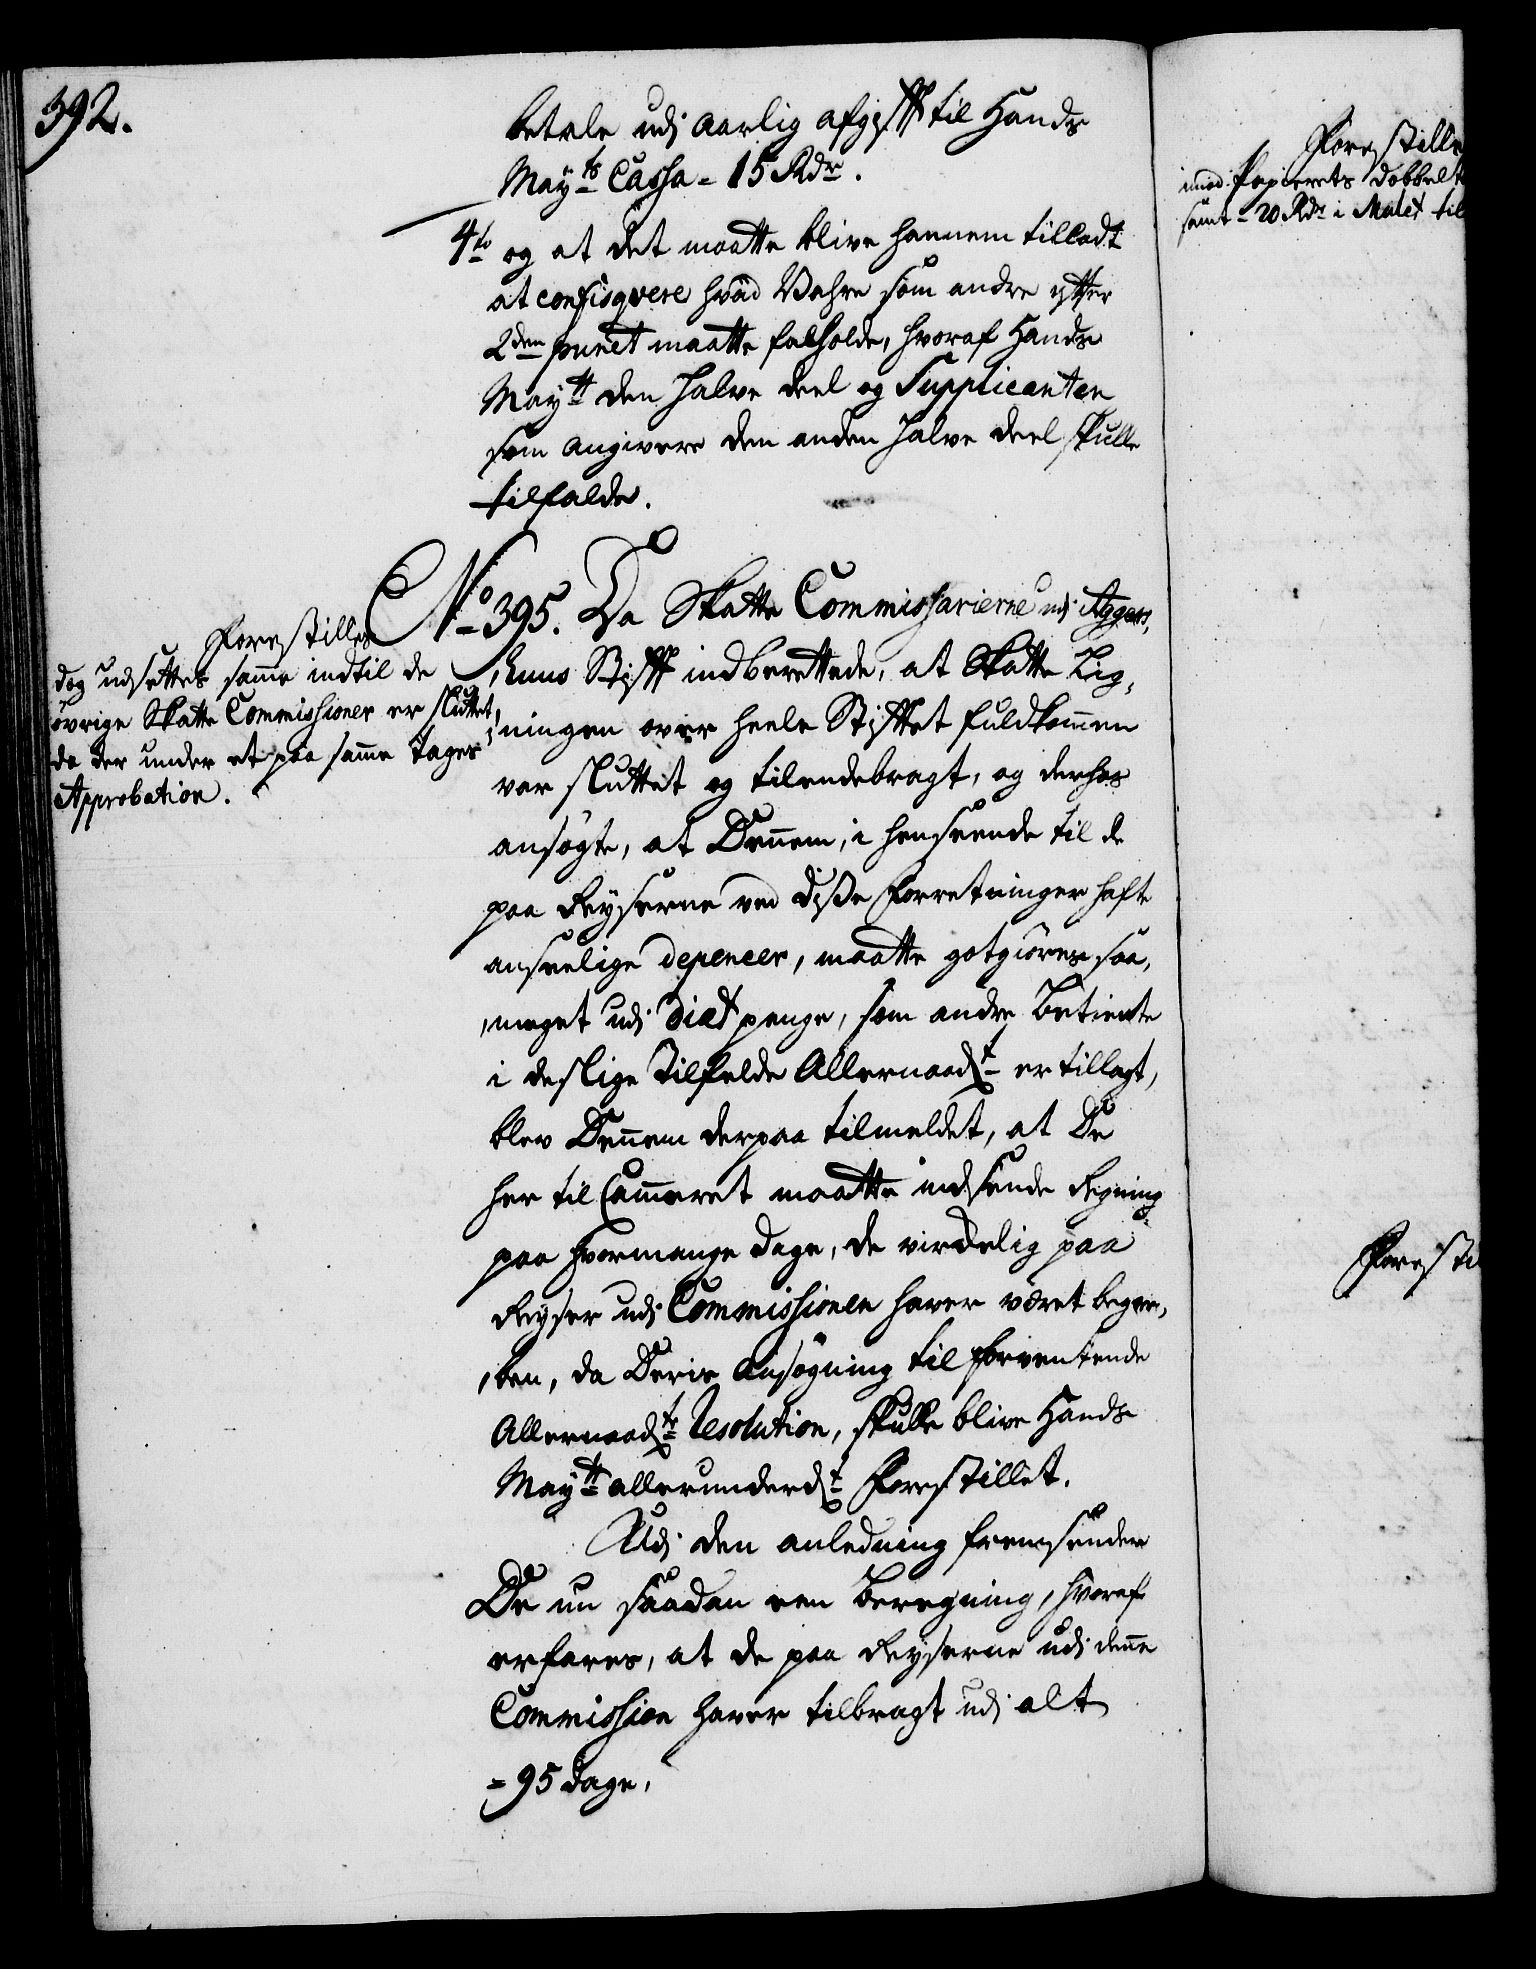 392.
betale udj aarlig afgifft til Hands
Mayts Cassa - 15 Rdr.
4to og at det maatte blive hannem tilladt
at confisqvere hvad Vahre som andre efter
2den punct maatte falholde, hvoraf Hands
Maytt den halve deel og Supplicanten
som angivere den anden halve deel skulle
tilfalde.
No 395. Da Skatte Commissarierne udj Agger,,
,,huus Stifft indberettede, at Skatte Lig,,
,,ningen over heele Stifftet fuldkommen
var sluttet og tilendebragt, og derhos
ansøgte, at Dennem, i henseende til de
paa Reyserne ved disse Forretninger hafte
anseelige depencer, maatte godtgiøres saa,,
,,meget udj diæt penge, som andre Betiente
i deslige Tilfelde Allernaadt er tillagt,
blev Dennem derpaa tilmeldet, at De
her til Cammeret maatte indsende Regning
paa hvormange dage, de virckelig paa
Reyser udj Commissionen haver været begre,,
,,ben, da Deris ansøgning til forventende
Allernaadte Resolution, skulle blive Hands
Maytt allerunderdt Forestillet.
Udj den anledning fremsender
De nu saadan een Beregning, hvoraf
erfares, at de paa Reyserne udj denne
Commission haver tilbragt udj alt
= 95 dage,
Forestilles
dog udsættes samme indtil de
øvrige Skatte Commissioner er sluttet,
da der under et paa samme tages
Approbation.
Forestille
imod Papierets dobbelt
samt - 20 Rdr i Mulct til
Foresti